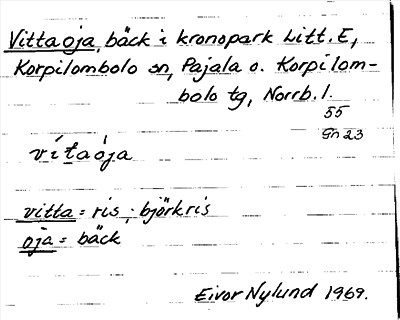 Vittaoja, bäck i kronopark Litt. E,
Korpilombolo sn, Pajala o. Korpilom-
bolo tg, Norrb. l.
55
Gn 23
vítaòja
vitta = ris, björkris
oja = bäck
Eivor Nylund 1969.